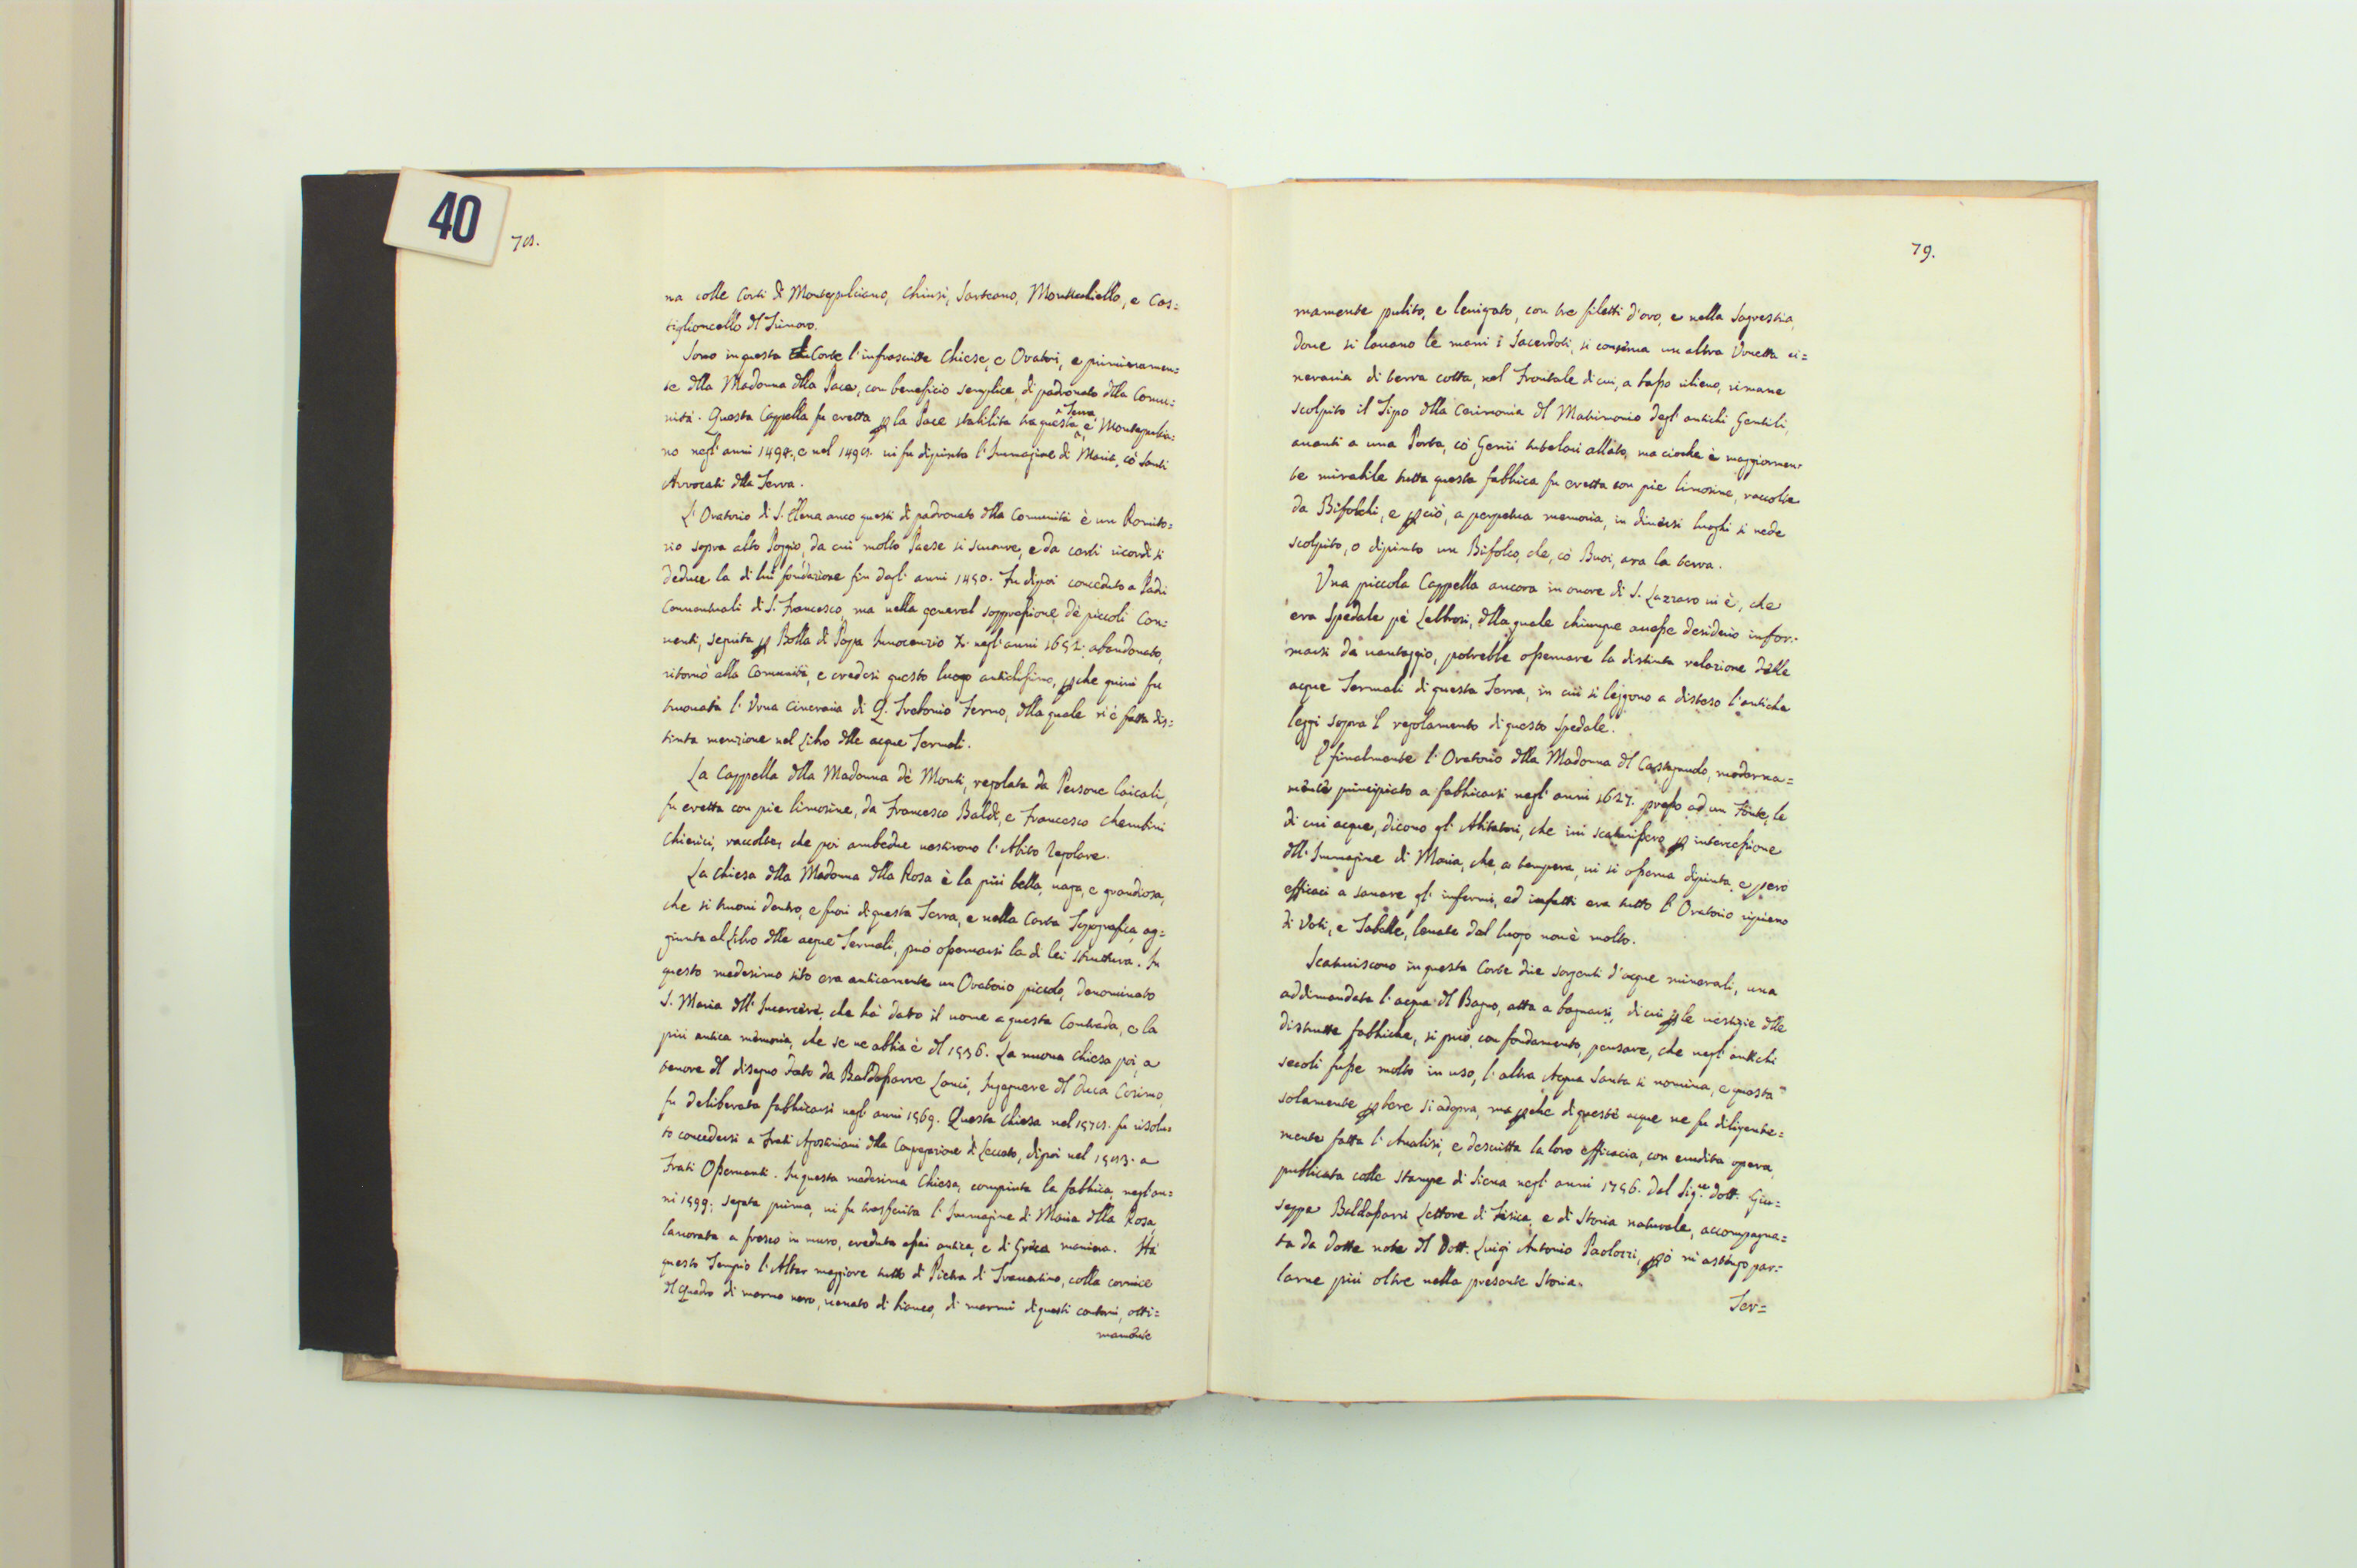 40
78.
na colle Corti di Montepulciano, Chiusi, Sarteano, Montichiello, e Cas=
tiglioncello dl Trinoro.
Sono in questa Corte l'infrascritte Chiese, e Oratori, e primieramen=
te dlla Madonna dlla Pace, con beneficio semplice, di padronato dlla Comu=
nità. Questa Cappella fu eretta p la Pace stabilita tra questa Terra, e Montepulcia=
no negl'anni 1494., e nel 1498. vi fu dipinto l'Immagine di Maria, cò Santi
Avvocati dlla Terra.
L'Oratorio di S. Elena anco questi di padronato dlla Comunità è un Romito=
rio sopra alto Poggio, da cui molto Paese si scuopre, e da certi ricordi si
deduce la di lui fondazione fin dagl'anni 1450. Fu dipoi conceduto a Padri
Conventuali di S. Francesco, ma nella general soppressione dè piccoli Con=
venti, seguita p Bolla di Papa Innocenzio X. negl'anni 1652. abandonato,
ritornò alla Comunità, e credesi questo luogo antichissimo, pche quivi fu
truovata l'Urna Cineraria di Q. Trebonio Ferno, dlla quale si è fatta dis=
tinta menzione nel Libro dlle acque Termali.
La Cappella dlla Madonna dè Monti, regolata da Persone laicali,
fu eretta con pie limosine, da Francesco Baldi, e Francesco Cherubini
Chierici, raccolte, che poi ambedue vestirono l'Abito Regolare.
La Chiesa dlla Madonna dlla Rosa è la più bella, vaga, e grandiosa,
che si truovi dentro, e fuori di questa Terra, e nella Carta Topografica, ag=
giunta al Libro dlle acque Termali, può osservarsi la di lei struttura. In
questo medesimo sito era anticamente un Oratorio piccolo, denominato
S. Maria dll' , che hà dato il nome a questa Contrada, e la
più antica memoria, che se ne abbia è dl 1536. La nuova Chiesa poi, a
tenore dl disegno dato da Baldassarre Lanci, Ingegnere dl Duca Cosimo,
fu deliberata fabbricarsi negl'anni 1569. Questa Chiesa nel 1578. fu risolu=
to concedersi a Frati Agostiniani dlla Congregazione di Lecceto, dipoi nel 1583. a
Frati Osservanti. In questa medesima Chiesa, compiuta la fabbrica, negl'an=
ni 1599. segata prima, vi fu trasferita l'Immagine di Maria dlla Rosa,
lavorata a fresco in muro, creduta assai antica, e di Greca maniera. Hà
questo Tempio l'Altar maggiore tutto di Pietra di Travertino, colla cornice
dl Quadro di marmo nero, venato di bianco, di marmi di questi contorni, otti=
mamente
79.
mamente pulito, e levigato, con tre filetti d'oro, e nella Sagrestia,
dove si lavano le mani i Sacerdoti, si conserva un altra Urnetta ci=
neraria di terra cotta, nel Frontale di cui, a basso rilievo, rimane
scolpito il Tipo dlla Cerimonia dl Matrimonio degl'antichi Gentili,
avanti a una Porta, cò Genii tutelari allato, ma cioche è maggiormen=
te mirabile tutta questa fabbrica fu eretta con pie limosine, raccolte
da Bifolchi, e pciò, a perpetua memoria, in diversi luoghi si vede
scolpito, o dipinto un Bifolco, che, cò Buoi, ara la terra.
Una piccola Cappella ancora in onore di S. Lazzaro vi è, che
era Spedale pè Lebbrosi, dlla quale chiunque avesse desiderio infor=
marsi da vantaggio, potrebbe osservare la distinta relazione delle
acque Termali di questa Terra, in cui si leggono a disteso l'antiche
leggi sopra 'l regolamento di questo Spedale.
E finalmente l'Oratorio dlla Madonna dl Castagnolo, moderna=
mente principiato a fabbricarsi negl'anni 1627. presso ad un Fonte, le
di cui acque, dicono gl'Abitatori, che ivi scaturissero p intercessione
dll'Immagine di Maria, che, a tempera, vi si osserva dipinta, e però
efficaci a sanare gl'infermi, ed infatti era tutto l'Oratorio ripieno
di Voti, e Tabelle, levate dal luogo non è molto.
Scaturiscono in questa Corte due sorgenti d'acque minerali, una
addimandata l'acqua dl Bagno, atta a bagnarsi, di cui p le vestigie dlle
distrutte fabbriche, si può, con fondamento, pensare, che negl'antichi
secoli fusse molto in uso, l'altra Acqua Santa si nomina, e questa
solamente p bere si adopra, ma pche di queste acque ne fu diligente=
mente fatta l'Analisi, e descritta la loro efficacia, con erudita opera,
pubblicata colle stampe di Siena negl'anni 1756. dal Sig.re Dott. Giu=
seppe Baldassarri Lettore di Fisica, e di Storia naturale, accompagna=
ta da dotte note dl Dott. Luigi Antonio Paolozzi, pò mi astengo par=
larne più oltre nella presente Storia.
Ter=